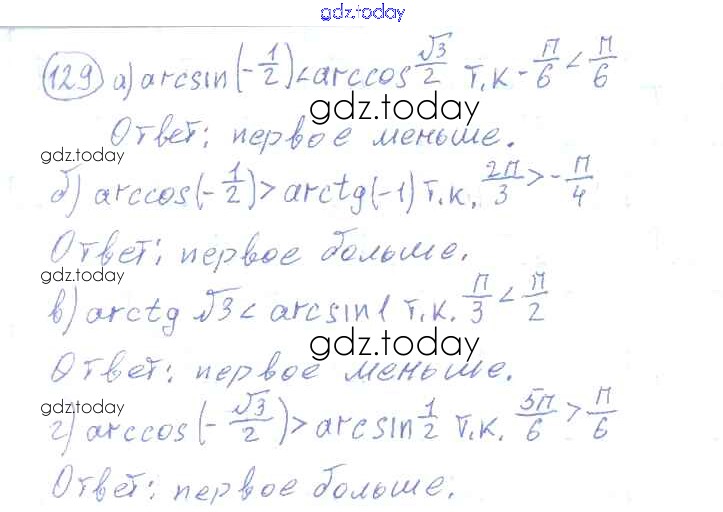 gdz.today
129 а) arcsin(-1/2) < arccos √3/2 т.к -π/6 < π/6
gdz.today
Ответ: первое меньше.
gdz.today
б) arccos(-1/2) > arctg(-1) т.к. 2π/3 > -π/4
Ответ: первое больше.
gdz.today
в) arctg √3 < arcsin1 т.к. π/3 < π/2
gdz.today
Ответ: первое меньше.
gdz.today
г) arccos(-√3/2) > arcsin 1/2 т.к. 5π/6 > π/6
Ответ: первое больше.